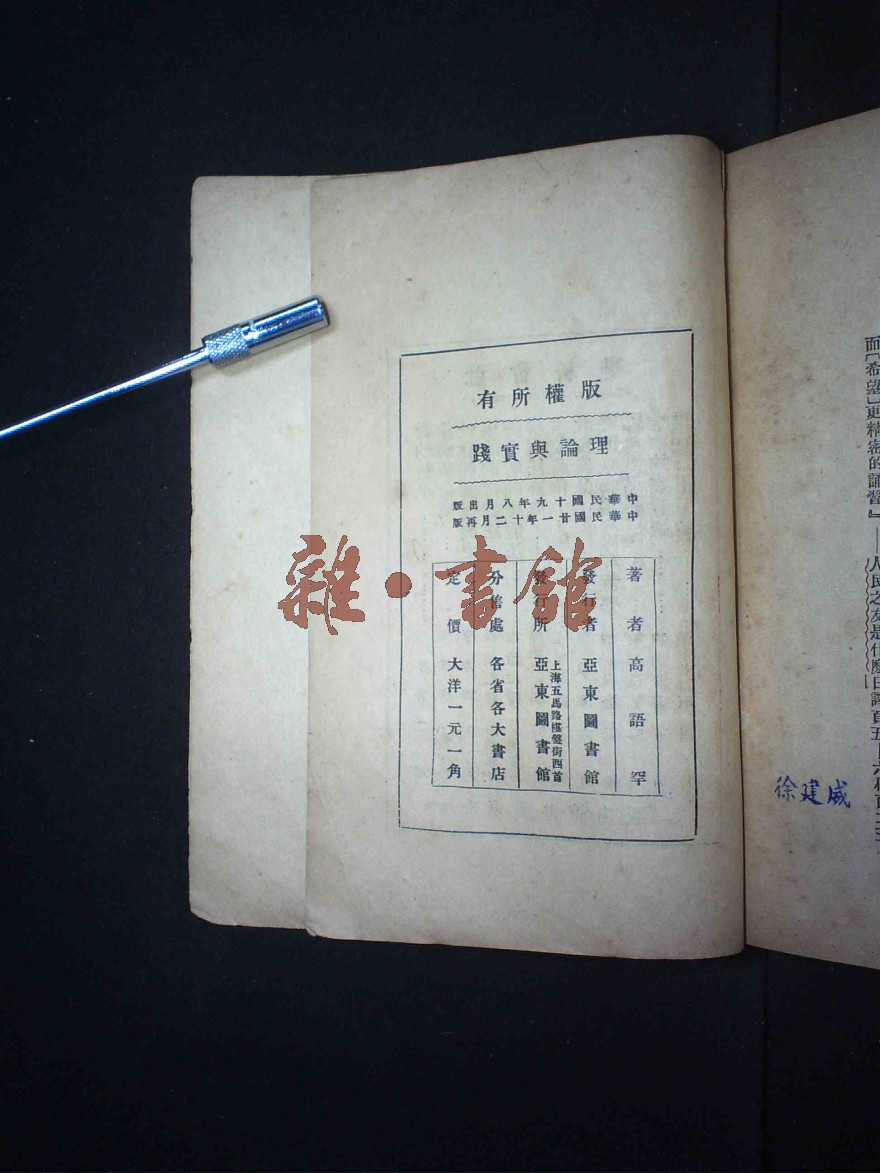 版權所有
理論與實踐
中華民國十九年八月出版
中華民國廿一年十二月再版
著者 高語罕
發行者 亞東圖書館
發行所 上海五馬路棋盤街西首 亞東圖書館
分售處 各省各大書店
定價 大洋一元一角
雜·書館
而「希望」更精密的論
人民之友是什麼日譯頁五
徐建威